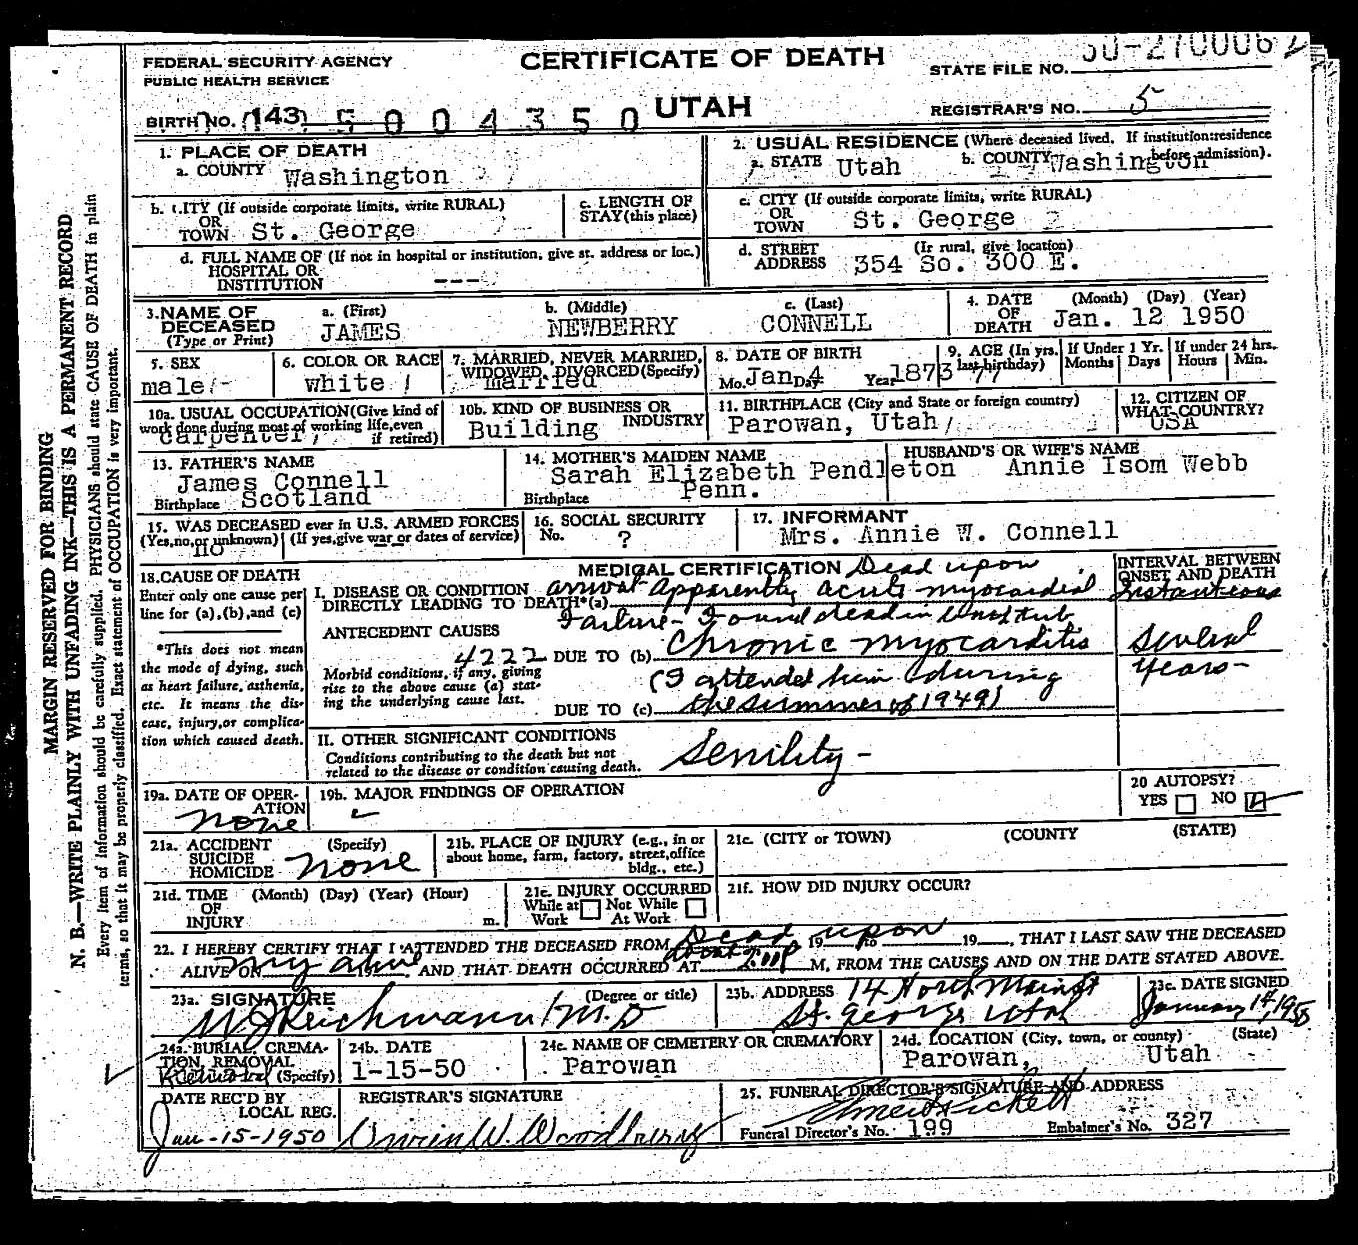 FEDERAL SECURITY AGENCY
PUBLIC HEALTH SERVICE
CERTIFICATE OF DEATH
STATE FILE NO. 50-270006
BIRTH NO. (143) 5004350
UTAH
REGISTRAR'S NO. 5
MARGIN RESERVED FOR BINDING
N. B.—WRITE PLAINLY WITH UNFADING INK—THIS IS A PERMANENT RECORD
Every item of information should be carefully supplied. PHYSICIANS should state CAUSE OF DEATH in plain
terms, so that it may be properly classified. Exact statement of OCCUPATION is very important.
1. PLACE OF DEATH
a. COUNTY Washington
2. USUAL RESIDENCE (Where deceased lived. If institution: residence before admission).
a. STATE Utah b. COUNTY Washington
b. CITY (If outside corporate limits, write RURAL)
OR
TOWN St. George
c. LENGTH OF
STAY (this place)
c. CITY (If outside corporate limits, write RURAL)
OR
TOWN St. George
d. FULL NAME OF (If not in hospital or institution, give st. address or loc.)
HOSPITAL OR
INSTITUTION ---
d. STREET (If rural, give location)
ADDRESS 354 So. 300 E.
3. NAME OF DECEASED (Type or Print)
a. (First) JAMES
b. (Middle) NEWBERRY
c. (Last) CONNELL
4. DATE OF DEATH (Month) (Day) (Year)
Jan. 12 1950
5. SEX
male
6. COLOR OR RACE
white
7. MARRIED, NEVER MARRIED,
WIDOWED, DIVORCED (Specify)
married
8. DATE OF BIRTH
Mo. Jan Day 4 Year 1873
9. AGE (In yrs. last birthday) 77
If Under 1 Yr. Months Days
If under 24 hrs. Hours Min.
10a. USUAL OCCUPATION (Give kind of
work done during most of working life, even
if retired)
Carpenter
10b. KIND OF BUSINESS OR
INDUSTRY
Building
11. BIRTHPLACE (City and State or foreign country)
Parowan, Utah
12. CITIZEN OF
WHAT COUNTRY?
USA
13. FATHER'S NAME
James Connell
Birthplace Scotland
14. MOTHER'S MAIDEN NAME
Sarah Elizabeth Pendleton
Birthplace Penn.
HUSBAND'S OR WIFE'S NAME
Annie Isom Webb
15. WAS DECEASED ever in U.S. ARMED FORCES
(Yes, no, or unknown) (If yes, give war or dates of service)
no
16. SOCIAL SECURITY
No. ?
17. INFORMANT
Mrs. Annie W. Connell
18. CAUSE OF DEATH
Enter only one cause per
line for (a), (b), and (c)
*This does not mean
the mode of dying, such
as heart failure, asthenia,
etc. It means the dis-
ease, injury, or complica-
tion which caused death.
MEDICAL CERTIFICATION Dead upon
I. DISEASE OR CONDITION arrival apparently acute myocardial
DIRECTLY LEADING TO DEATH*(a)
Failure - Found dead in bath tub
ANTECEDENT CAUSES
4222 DUE TO (b) Chronic myocarditis
Morbid conditions, if any, giving
rise to the above cause (a) stat-
ing the underlying cause last.
(I attended him during
DUE TO (c) the summer of 1949)
II. OTHER SIGNIFICANT CONDITIONS
Conditions contributing to the death but not
related to the disease or condition causing death.
Senility -
INTERVAL BETWEEN
ONSET AND DEATH
Several
Years -
19a. DATE OF OPER-
ATION
none
19b. MAJOR FINDINGS OF OPERATION
20 AUTOPSY?
YES NO
21a. ACCIDENT (Specify)
SUICIDE
HOMICIDE none
21b. PLACE OF INJURY (e.g., in or
about home, farm, factory, street, office
bldg., etc.)
21c. (CITY or TOWN) (COUNTY (STATE)
21d. TIME (Month) (Day) (Year) (Hour)
OF
INJURY m.
21e. INJURY OCCURRED
While at Work Not While At Work
21f. HOW DID INJURY OCCUR?
22. I HEREBY CERTIFY THAT I ATTENDED THE DECEASED FROM Dead upon 19 to 19, THAT I LAST SAW THE DECEASED
ALIVE ON my arival AND THAT DEATH OCCURRED AT about M. FROM THE CAUSES AND ON THE DATE STATED ABOVE.
23a. SIGNATURE (Degree or title)
W J Reichmann M.D
23b. ADDRESS 14 North Main St
St. George Utah
23c. DATE SIGNED
January 14, 1950
24a. BURIAL, CREMA-
TION, REMOVAL
(Specify) Removal
24b. DATE
1-15-50
24c. NAME OF CEMETERY OR CREMATORY
Parowan
24d. LOCATION (City, town, or county) (State)
Parowan, Utah
DATE REC'D BY
LOCAL REG.
Jan-15-1950
REGISTRAR'S SIGNATURE
W. Woodbury
25. FUNERAL DIRECTOR'S SIGNATURE AND ADDRESS
Pickett
Funeral Director's No. 199 Embalmer's No. 327